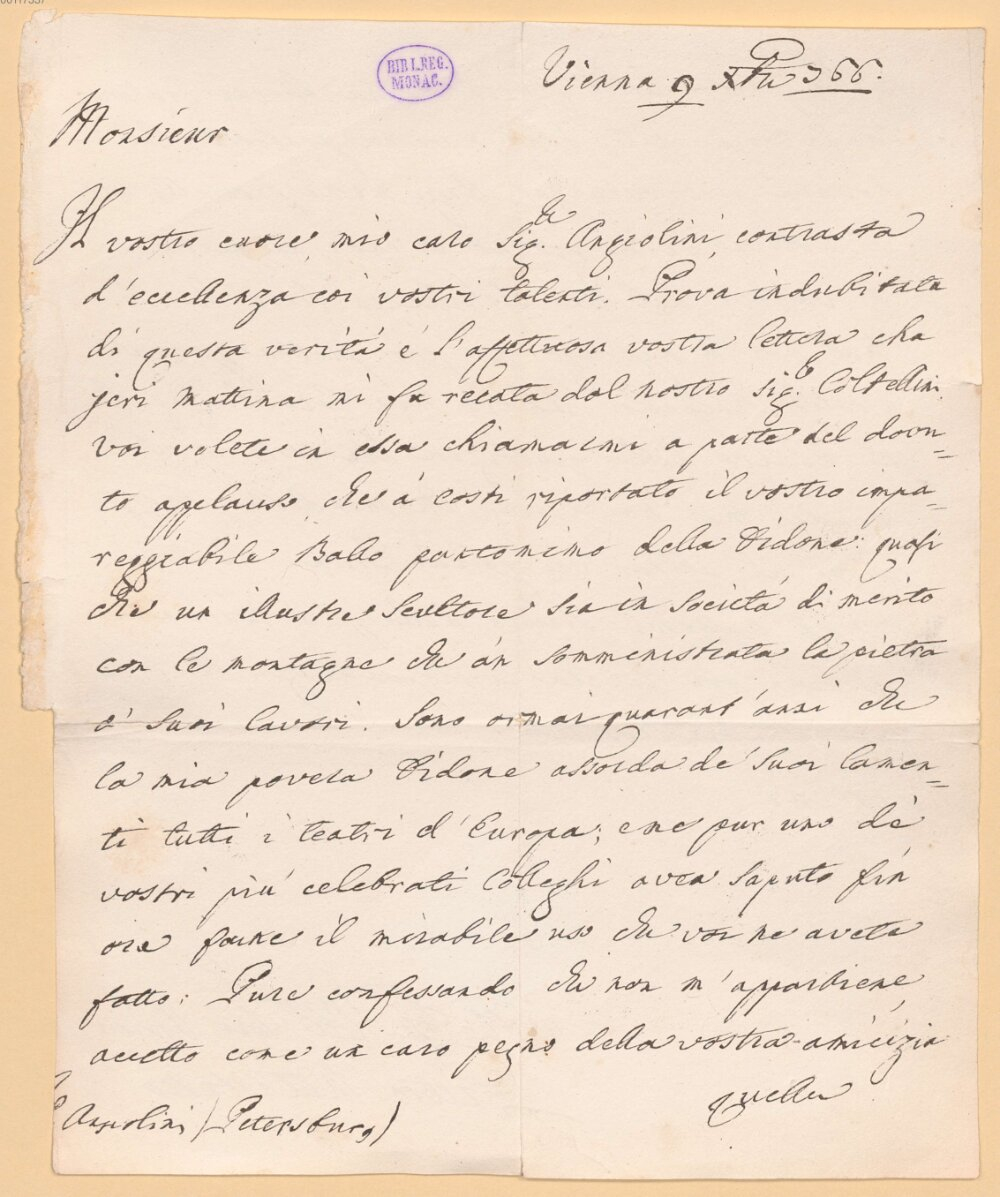 00117337
BIBL.REG.
MONAC.
Vienna 9 Xbre 766.
Monsieur
Il vostro cuore mio caro Sigr. Angiolini contrasta
d'eccellenza coi vostri talenti. Prova indubitata
di questa verità è l'affettuosa vostra lettera che
jeri mattina mi fu recata dal nostro Sigr. Coltellini.
Voi volete in essa chiamarmi a parte del dovu=
to applauso che à costì riportato il vostro impa=
reggiabile Ballo pantomimo della Didone: quasi
che un illustre scultore sia in società di merito
con le montagne che àn somministrata la pietra
a' suoi lavori. Sono ormai quarant'anni che
la mia povera Didone assorda de' suoi lamen=
ti tutti i teatri d'Europa; e ne pur uno de'
vostri più celebrati Colleghi avea saputo fin
ora farne il mirabile uso che voi ne avete
fatto: Pure confessando che non m'appartiene
accetto come un caro pegno della vostra amicizia
quella
Angiolini (Petersburg)